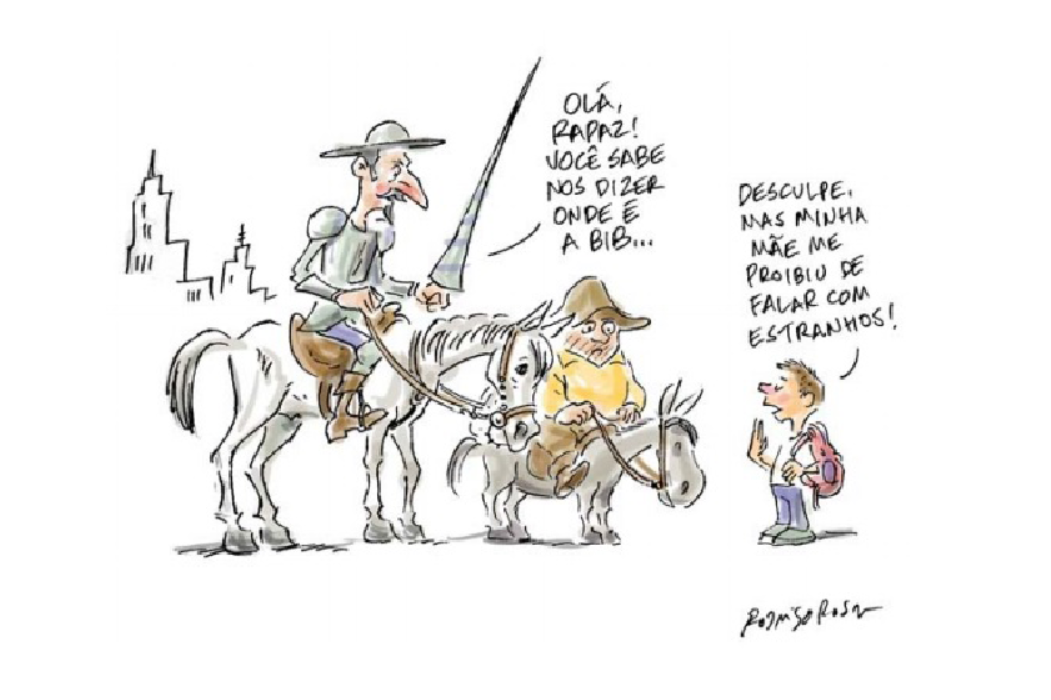 OLÁ,
RAPAZ!
VOCÊ SABE
NOS DIZER
ONDE É
A BIB...
DESCULPE,
MAS MINHA
MÃE ME
PROIBIU DE
FALAR COM
ESTRANHOS!
RODRIGO ROSA